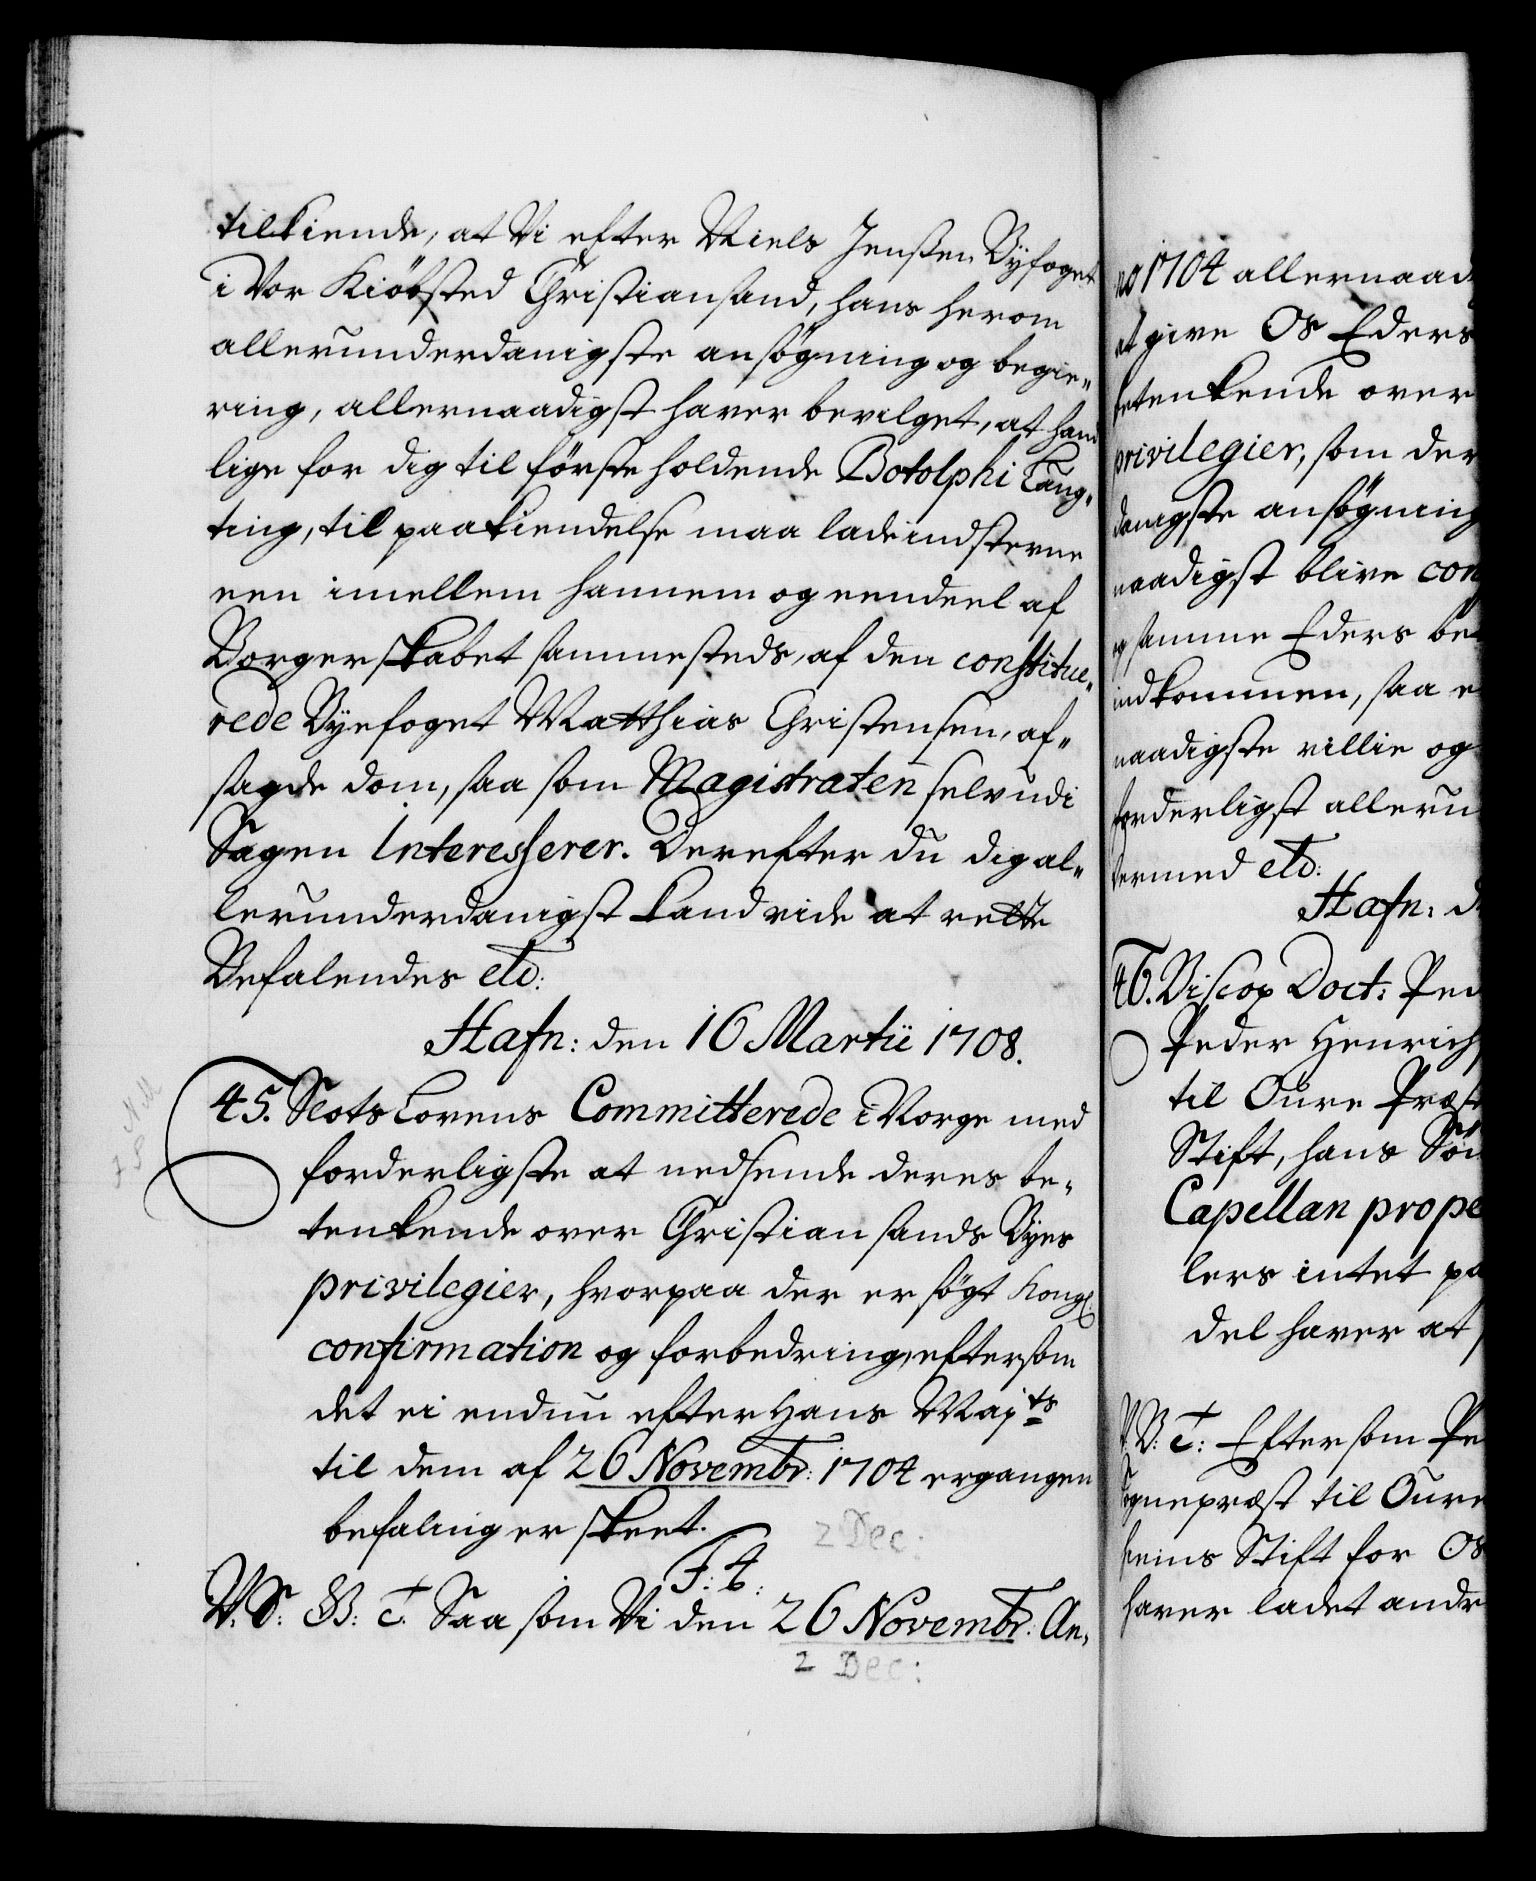 tilkiende, at Vi efter Niels Jenssen Byfoget
i Vor Kiöbsted Christiansand, hans herom
allerunderdanigste ansøgning og begie„
ring, allernaadigst haver bevilget, at hand
lige for dig til förste holdende Botolphi Laug„
ting, til paakiendelse maa lade indsterne
een imellem hannem og eendeel af
Borgerskabet sammesteds, af den constitue„
rede Byefoget Matthias Christensen, af„
sagde dom, saa som Magistraten selv udi
Sagen Interesserer. Derefter du dig al„
lerunderdanigst kand vide at rette
Befalendes etc:
Hafn: den 16 Martii 1708.
45. Slots Lovens Committerede i Norge med
forderligste at nedsende deres be„
tenkende over Christiansands Byes
privilegier, hvorpaa der er søgt Kongl:
confirmation og forbedring, eftersom
det ei endnu efter Hans Majts
til dem af 26 Novembr: 1704 ergangen
befaling er skeet.
2 Dec:
F: 4.
V. S: G: T. Saa som Vi den 26 Novembr. An„
2 Dec:
no 1704 allernaad
at give Os Eders
betenkende over
privilegier, som der
danigste ansøgning
naadigst blive con
og samme Eders be
indkommen, saa e
naadigste villie og
forderligst alleru
dermed etc:
Hafn: d
46. Biscop Doct: Ped
Peder Henrich
til Oure Præst
Stift, hans Sön
Capellan prope
lers intet pa
del haver at
V. B: T: Eftersom Pe
Sognepræst til Oure
hiems Stift for Os
haver ladet andr